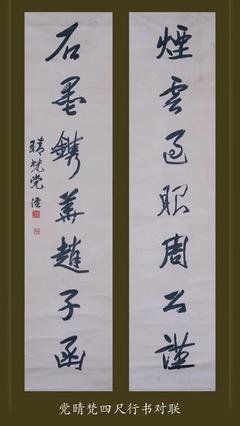 煙雲過眼周公謹
石墨鐫華趙子函
晴梵党
党晴梵四尺行书对联